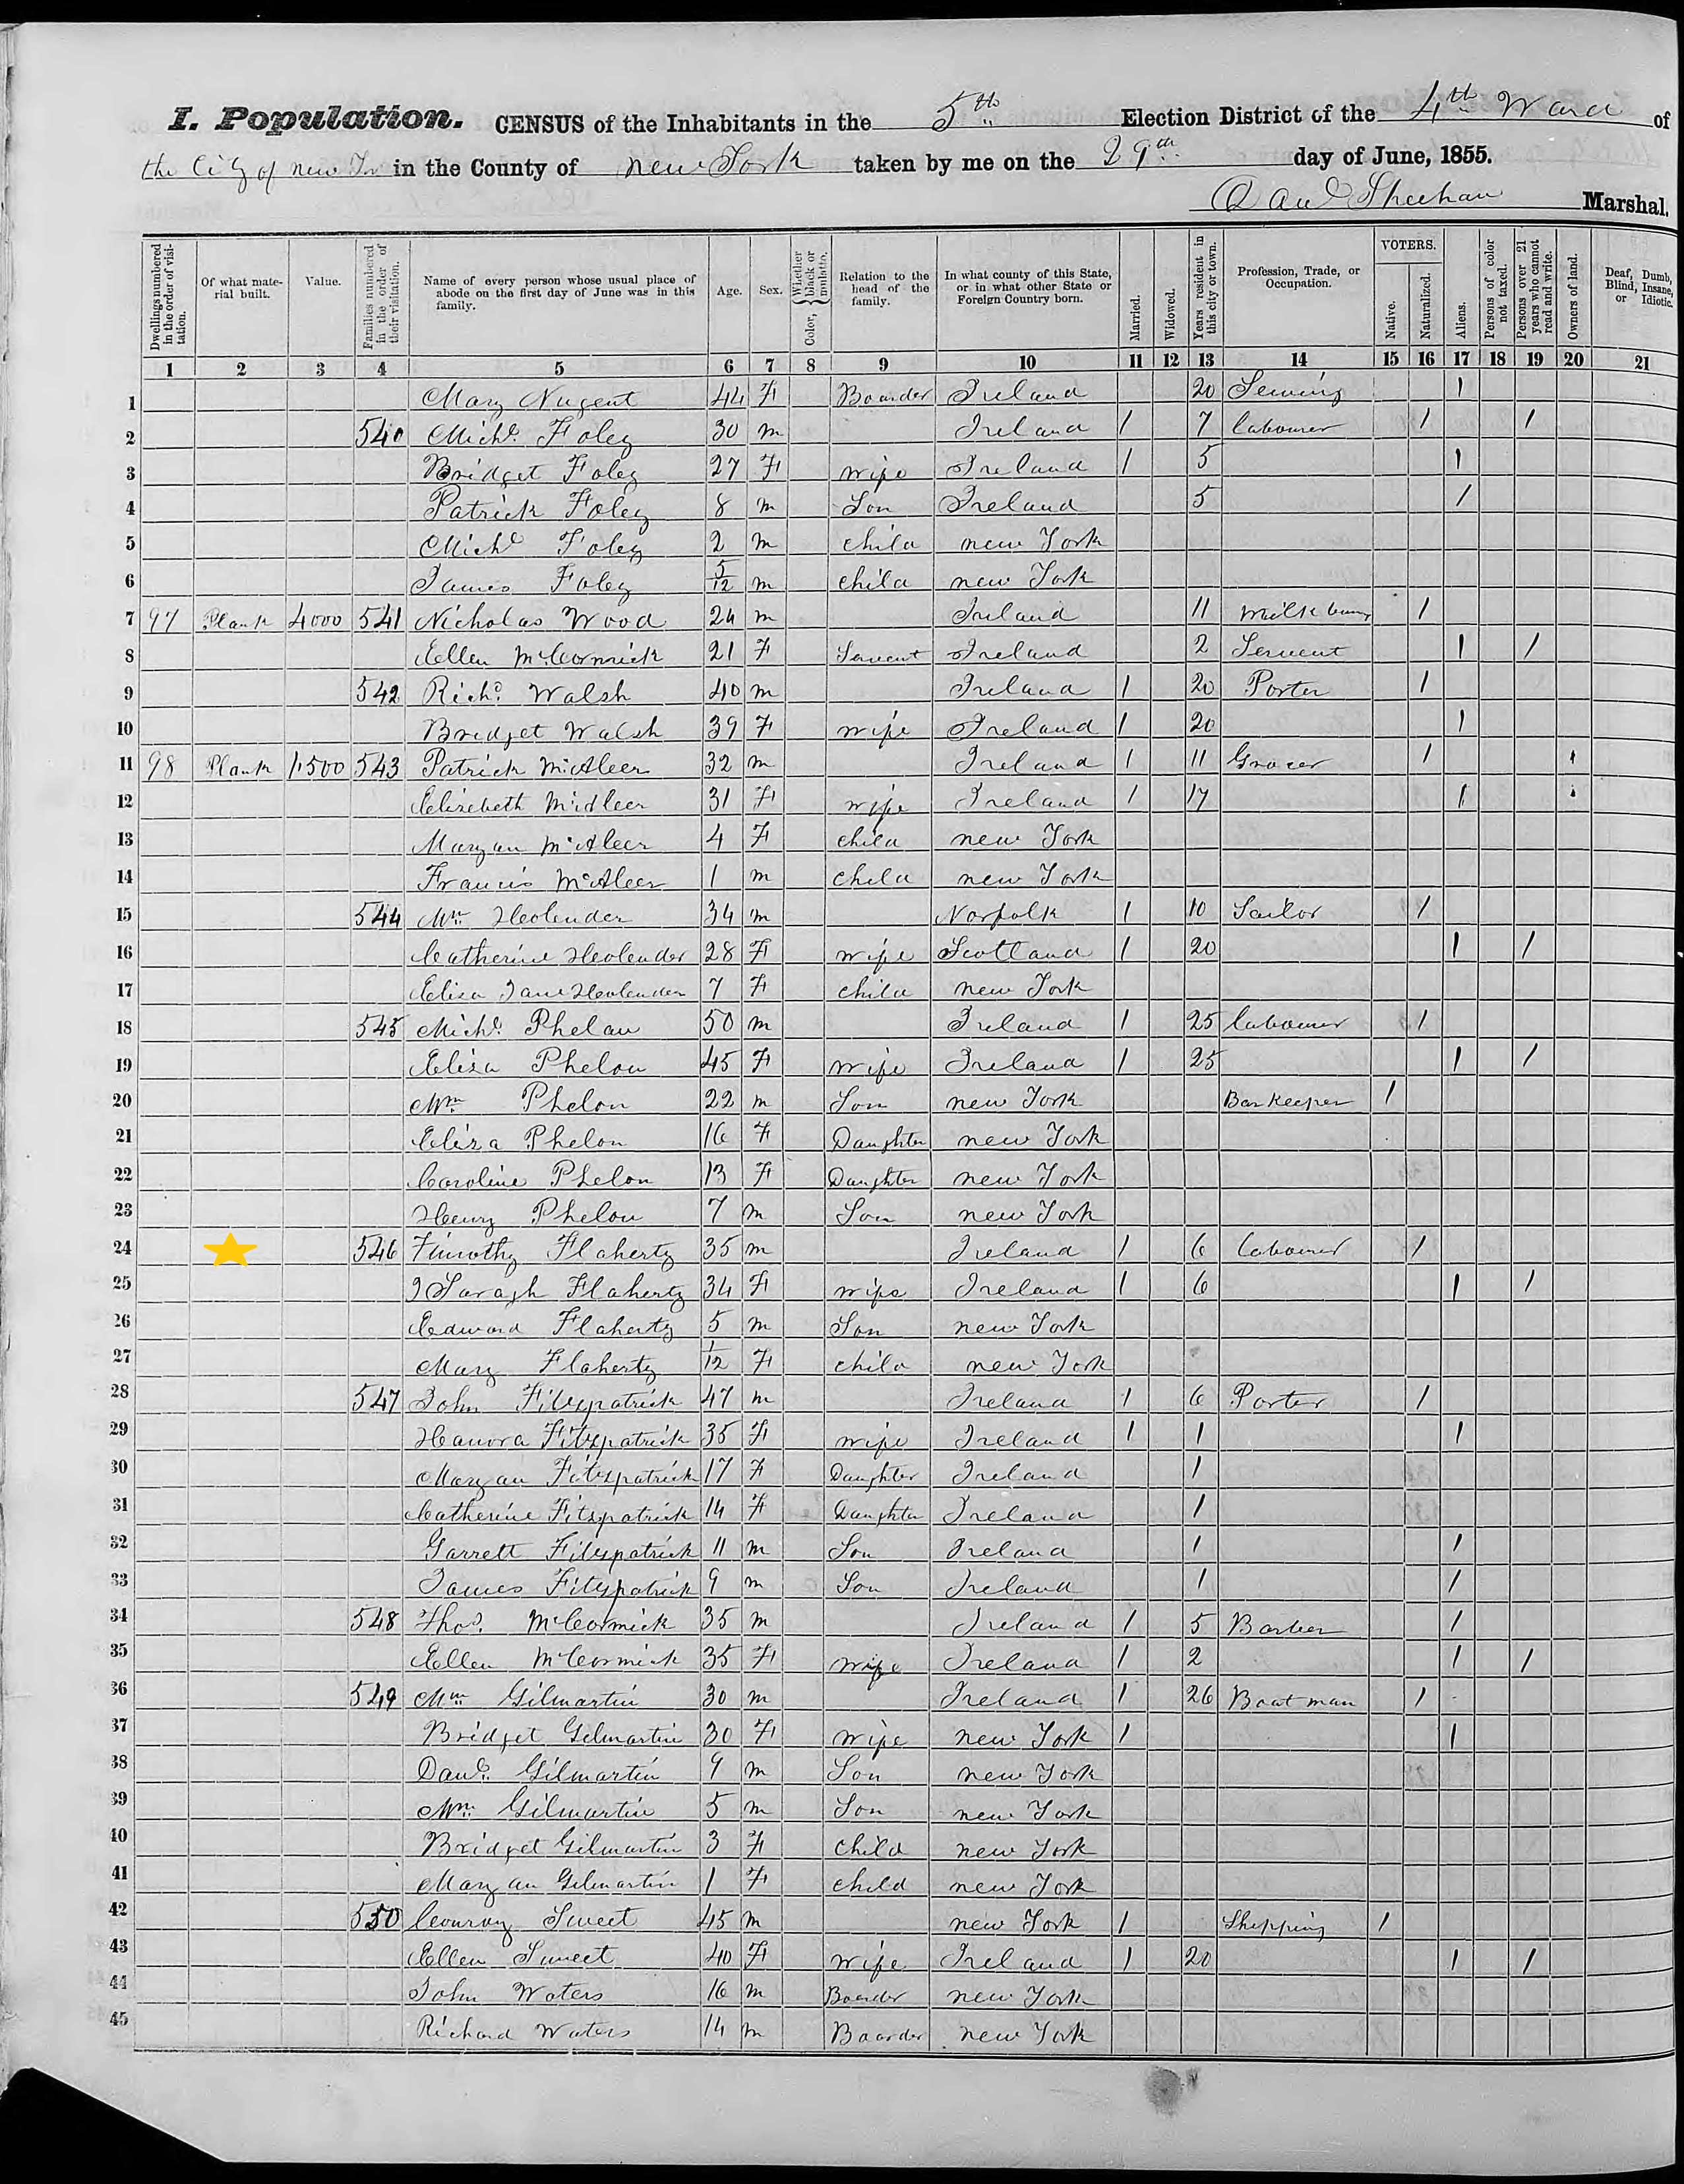 I. Population. CENSUS of the Inhabitants in the 5th Election District of the 4th Ward of
the City of new in the County of new York taken by me on the 29th day of June, 1855.
Sheehan Marshal.
Dwellings numbered in the order of visi-tation. Of what mate-rial built. Value. Families numbered in the order of their visitation. Name of every person whose usual place of abode on the first day of June was in this family. Age. Sex. Color, Whether black or mulatto. Relation to the head of the family. In what county of this State, or in what other State or Foreign Country born. Married. Widowed. Years resident in this city or town. Profession, Trade, or Occupation. VOTERS. Native. Naturalized. Aliens. Persons of color not taxed. Persons over 21 years who cannot read and write. Owners of land. Deaf, Dumb, Blind, Insane, or Idiotic.
1 2 3 4 5 6 7 8 9 10 11 12 13 14 15 16 17 18 19 20 21
1 Mary Nugent 44 F Boarder Ireland 20 Sewing 1
2 540 Michl. Foley 30 m Ireland 1 7 labourer 1 1
3 Bridget Foley 27 F wife Ireland 1 5 1
4 Patrick Foley 8 m Son Ireland 5 1
5 Michl Foley 2 m child new York
6 James Foley 5/12 m child new York
7 97 Plank 4000 541 Nicholas Wood 24 m Ireland 11 Milk 1
8 Ellen McCormick 21 F Servent Ireland 2 Servent 1 1
9 542 Richd. Walsh 40 m Ireland 1 20 Porter 1
10 Bridget Walsh 39 F wife Ireland 1 20 1
11 98 Plank 1500 543 Patrick McAleer 32 m Ireland 1 11 Grocer 1 1
12 Elizebeth McAleer 31 F wife Ireland 1 17 1 1
13 Maryan McAleer 4 F child new York
14 Francis McAleer 1 m child new York
15 544 Wm Heolender 34 m Norfolk 1 10 Sailor 1
16 Catherine Heolender 28 F wife Scotland 1 20 1 1
17 Eliza Jane Heolender 7 F child new York
18 545 Michl. Phelan 50 m Ireland 1 25 labourer 1
19 Eliza Phelon 45 F wife Ireland 1 25 1 1
20 Wm Phelon 22 m Son new York Barkeeper 1
21 Eliza Phelon 16 F Daughter new York
22 Caroline Phelon 13 F Daughter new York
23 Henry Phelon 7 m Son new York
24 546 Timothy Flaherty 35 m Ireland 1 6 labourer 1
25 Saragh Flaherty 34 F wife Ireland 1 6 1 1
26 Edward Flaherty 5 m Son new York
27 Mary Flaherty 1/12 F child new York
28 547 John Fitzpatrick 47 m Ireland 1 6 Porter 1
29 Hanora Fitzpatrick 35 F wife Ireland 1 1 1
30 Maryan Fitzpatrick 17 F Daughter Ireland 1
31 Catherine Fitzpatrick 14 F Daughter Ireland 1
32 Garrett Fitzpatrick 11 m Son Ireland 1 1
33 James Fitzpatrick 9 m Son Ireland 1 1
34 548 Thos. McCormick 35 m Ireland 1 5 Barber 1
35 Ellen McCormick 35 F wife Ireland 1 2 1 1
36 549 Wm Gilmartin 30 m Ireland 1 26 Boatman 1
37 Bridget Gilmartin 30 F wife new York 1 1
38 Danl. Gilmartin 9 m Son new York
39 Wm. Gilmartin 5 m Son new York
40 Bridget Gilmartin 3 F child new York
41 Maryan Gilmartin 1 F child new York
42 550 Conroy Sweet 45 m new York 1 Shipping 1
43 Ellen Sweet 40 F wife Ireland 1 20 1 1
44 John Waters 16 m Boarder new York
45 Richard Waters 14 m Boarder new York